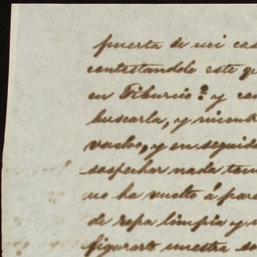 puerta de mi cas
contestandole este q
en Tiburcio? y con
buscarla, y mient
vacho, y en seguida
sospechar nada tom
no ha vuelto á pare
de ropa limpia y
figurarte nuestra so